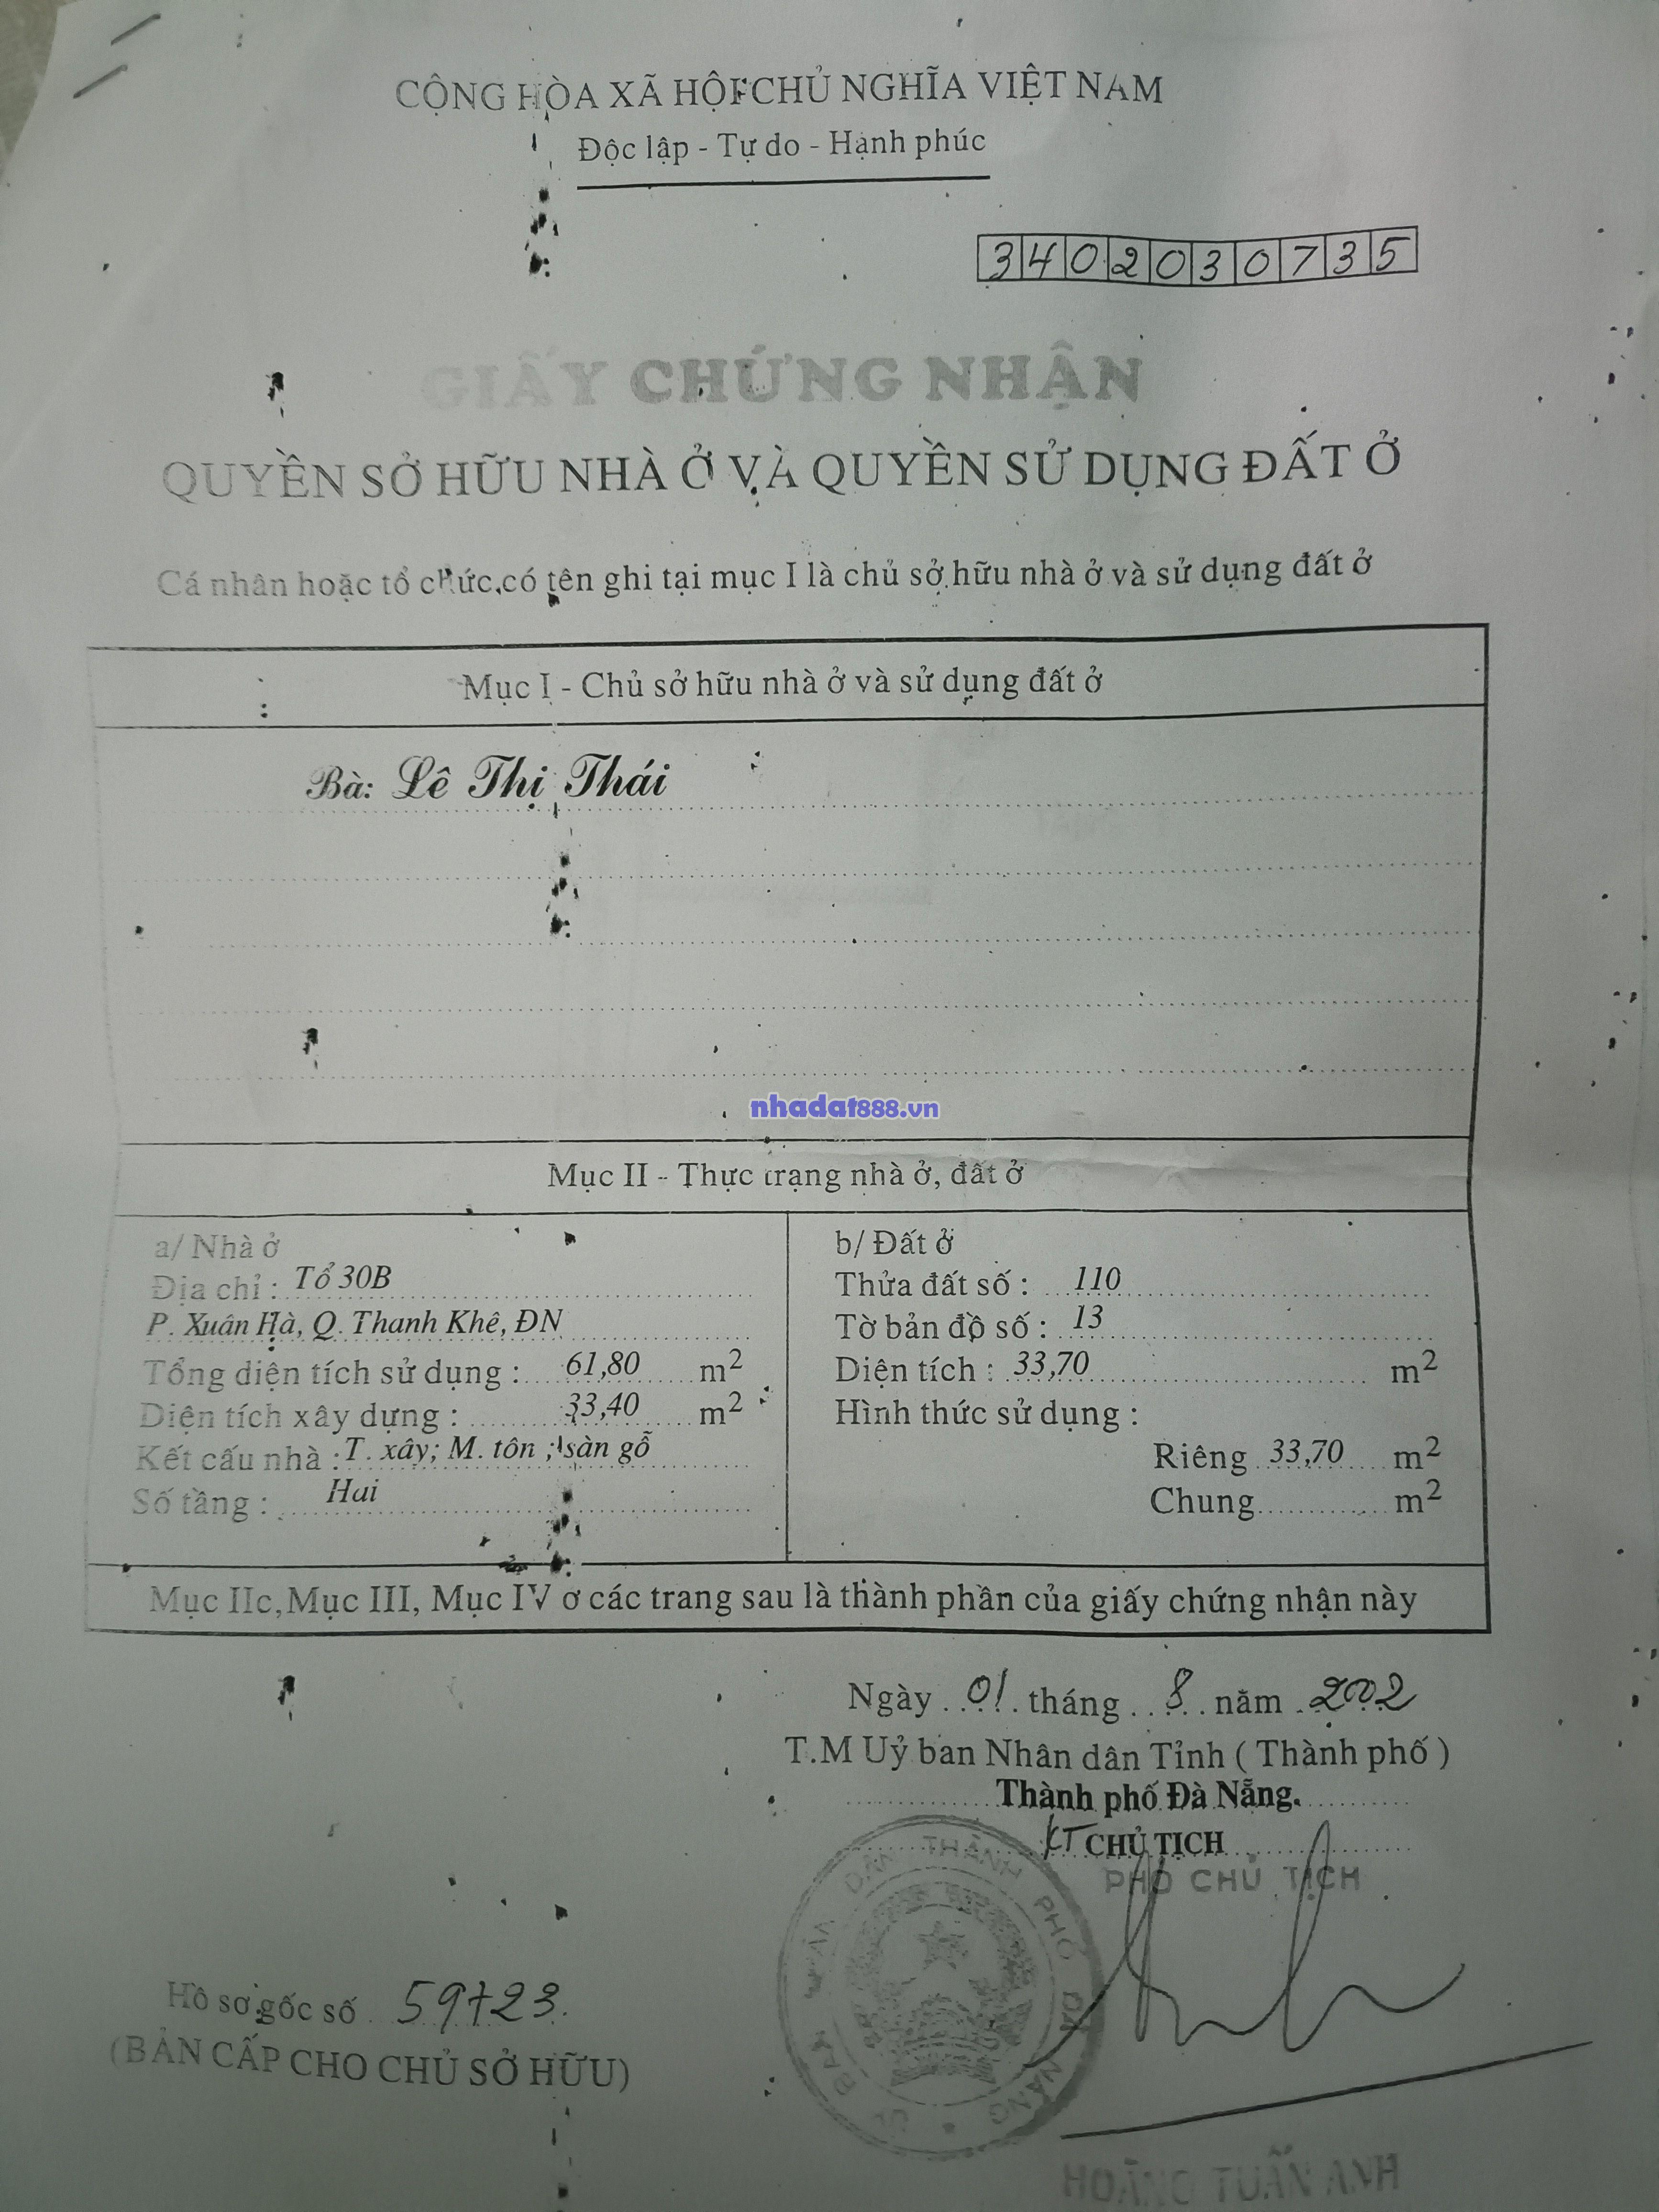 CỘNG HÒA XÃ HỘI CHỦ NGHĨA VIỆT NAM
Độc lập - Tự do - Hạnh phúc
3402030735
GIẤY CHỨNG NHẬN
QUYỀN SỞ HỮU NHÀ Ở VÀ QUYỀN SỬ DỤNG ĐẤT Ở
Cá nhân hoặc tổ chức có tên ghi tại mục I là chủ sở hữu nhà ở và sử dụng đất ở
Mục I - Chủ sở hữu nhà ở và sử dụng đất ở
Bà: Lê Thị Thái
nhadat888.vn
Mục II - Thực trạng nhà ở, đất ở
a/ Nhà ở
Địa chỉ : Tổ 30B
P. Xuân Hà, Q. Thanh Khê, ĐN
Tổng diện tích sử dụng : 61,80 m2
Diện tích xây dựng : 33,40 m2
Kết cấu nhà : T. xây; M. tôn ; sàn gỗ
Số tầng : Hai
b/ Đất ở
Thửa đất số : 110
Tờ bản đồ số : 13
Diện tích : 33,70 m2
Hình thức sử dụng :
Riêng 33,70 m2
Chung m2
Mục IIc, Mục III, Mục IV ở các trang sau là thành phần của giấy chứng nhận này
Ngày 01 tháng 8 năm 2002
T.M Uỷ ban Nhân dân Tỉnh ( Thành phố )
Thành phố Đà Nẵng.
KT CHỦ TỊCH
PHÓ CHỦ TỊCH
ỦY BAN NHÂN DÂN THÀNH PHỐ ĐÀ NẴNG
Hồ sơ gốc số 59723.
(BẢN CẤP CHO CHỦ SỞ HỮU)
HOÀNG TUẤN ANH